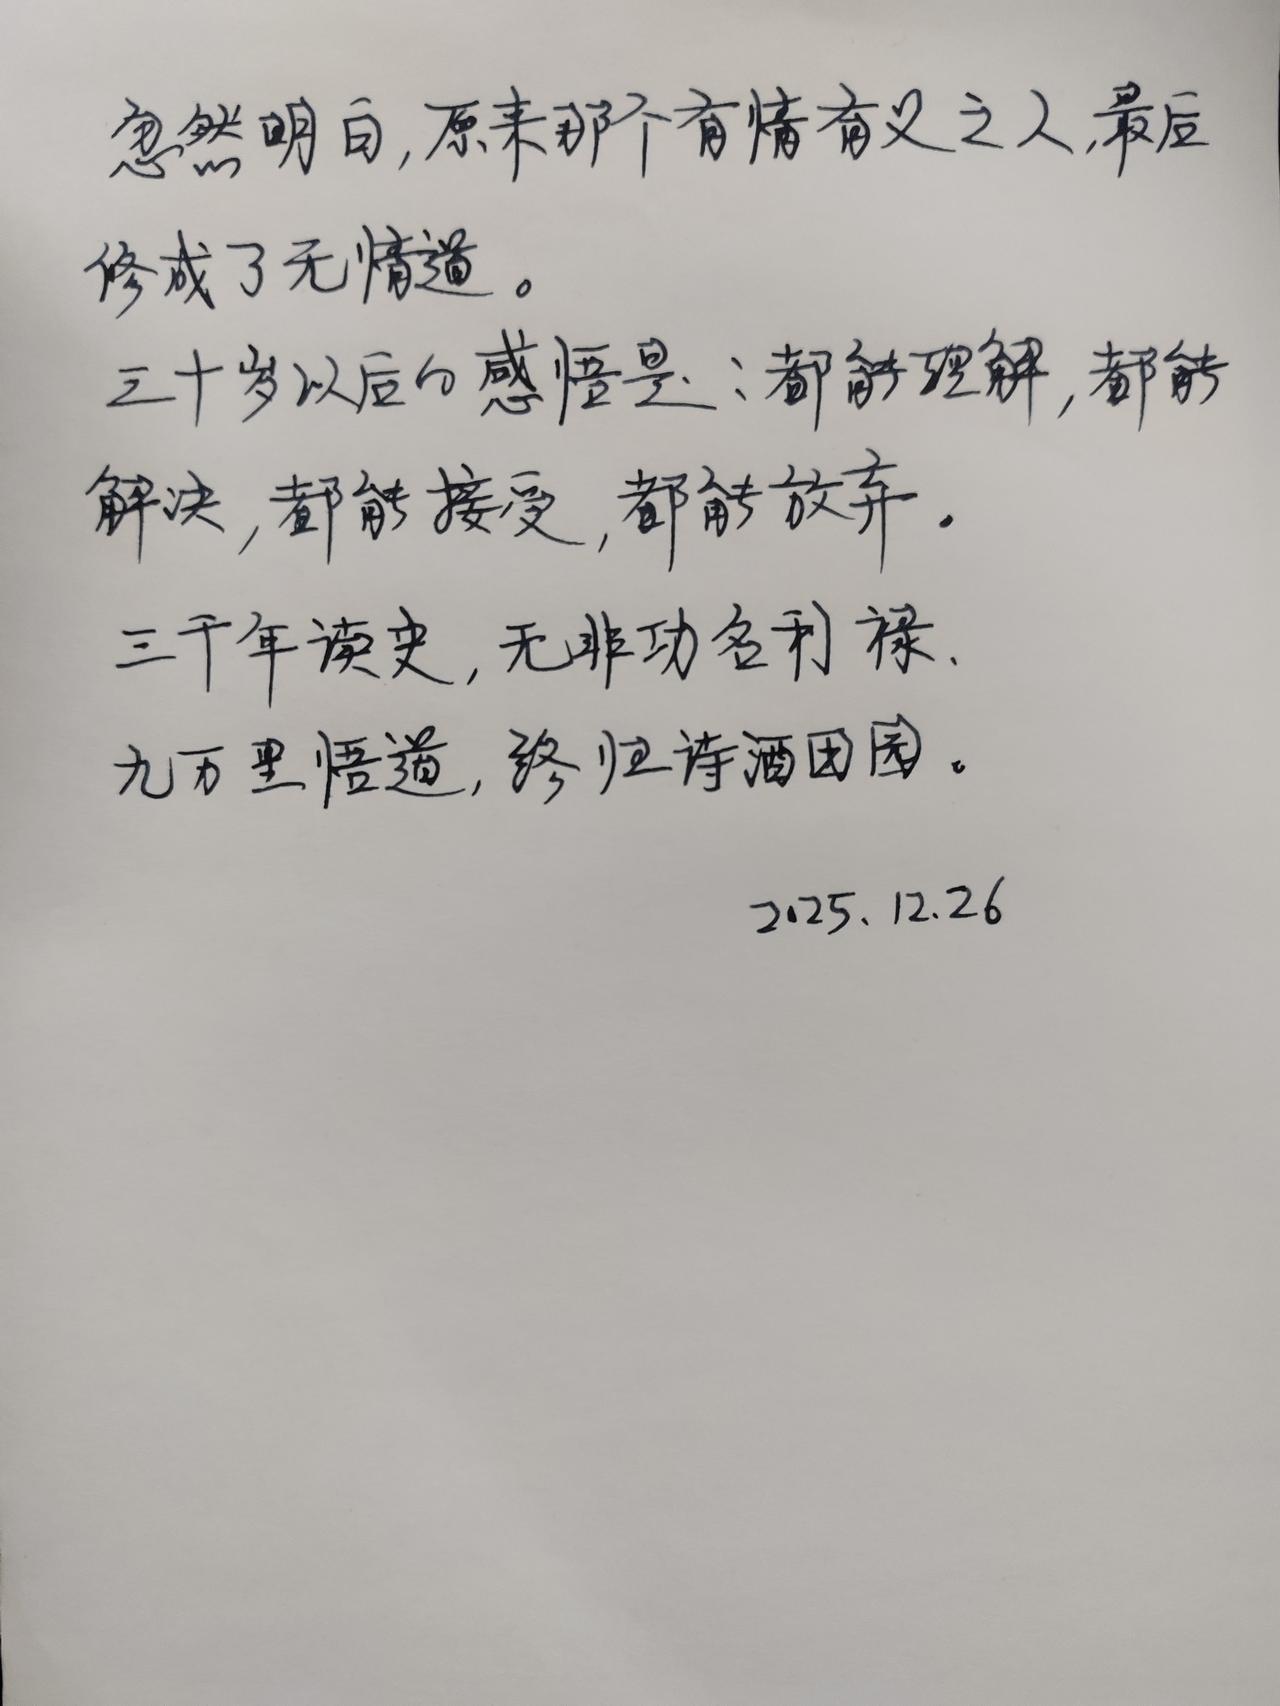 忽然明白,原来那个有情有义之人,最后
修成了无情道。
三十岁以后的感悟是:都能理解,都能
解决,都能接受,都能放弃.
三千年读史,无非功名利禄、
九万里悟道,终归诗酒田园。
2025.12.26